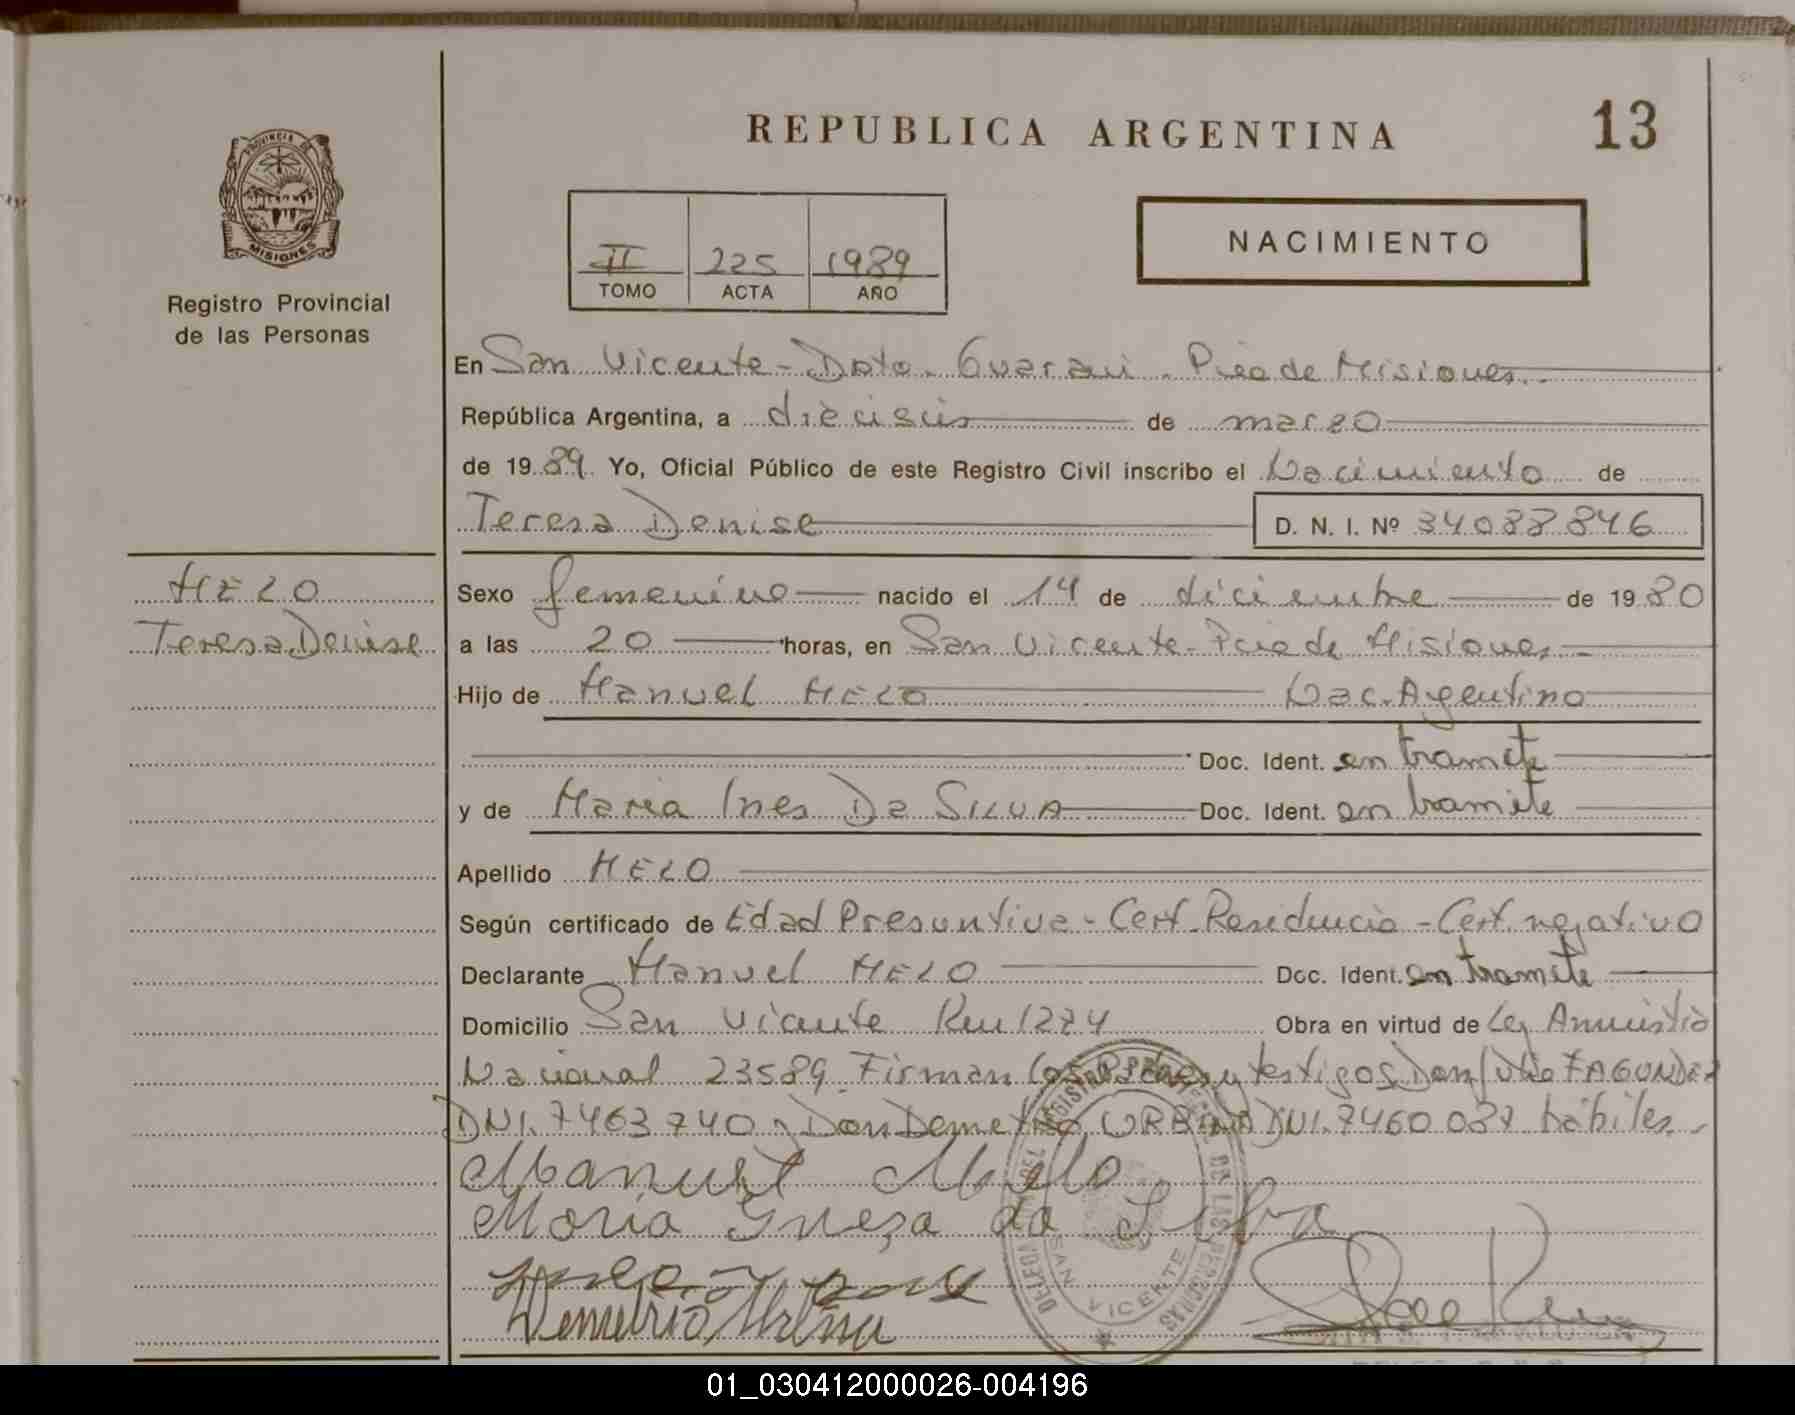 REPUBLICA ARGENTINA
13
PROVINCIA DE
MISIONES
Registro Provincial
de las Personas
II 225 1989
TOMO ACTA AÑO
NACIMIENTO
En San Vicente - Dpto. Guarani - Pcia de Misiones
República Argentina, a dieciseis de marzo
de 19 89 Yo, Oficial Público de este Registro Civil inscribo el Nacimiento de
Teresa Denise D. N. I. Nº 34088846
MELO
Teresa Denise
Sexo femenino nacido el 14 de diciembre de 19 80
a las 20 horas, en San Vicente - Pcia de Misiones
Hijo de Manuel MELO Nac. Argentino
Doc. Ident. en tramite
y de Maria Ines Da SILVA Doc. Ident. en tramite
Apellido MELO
Según certificado de Edad Presuntiva - Cert. Residencia - Cert. negativo
Declarante Manuel MELO Doc. Ident. en tramite
Domicilio San Vicente Km 1274 Obra en virtud de Ley Amnistia
Nacional 23589. Firman los Padres y testigos Don Julio FAGUNDEZ
DNI. 7463740 y Don Demetrio URBINA DNI. 7460087 hábiles.
Manuel Melo
Moria Gnesa da Silva
Demetrio Urbina
SAN VICENTE
01_030412000026-004196